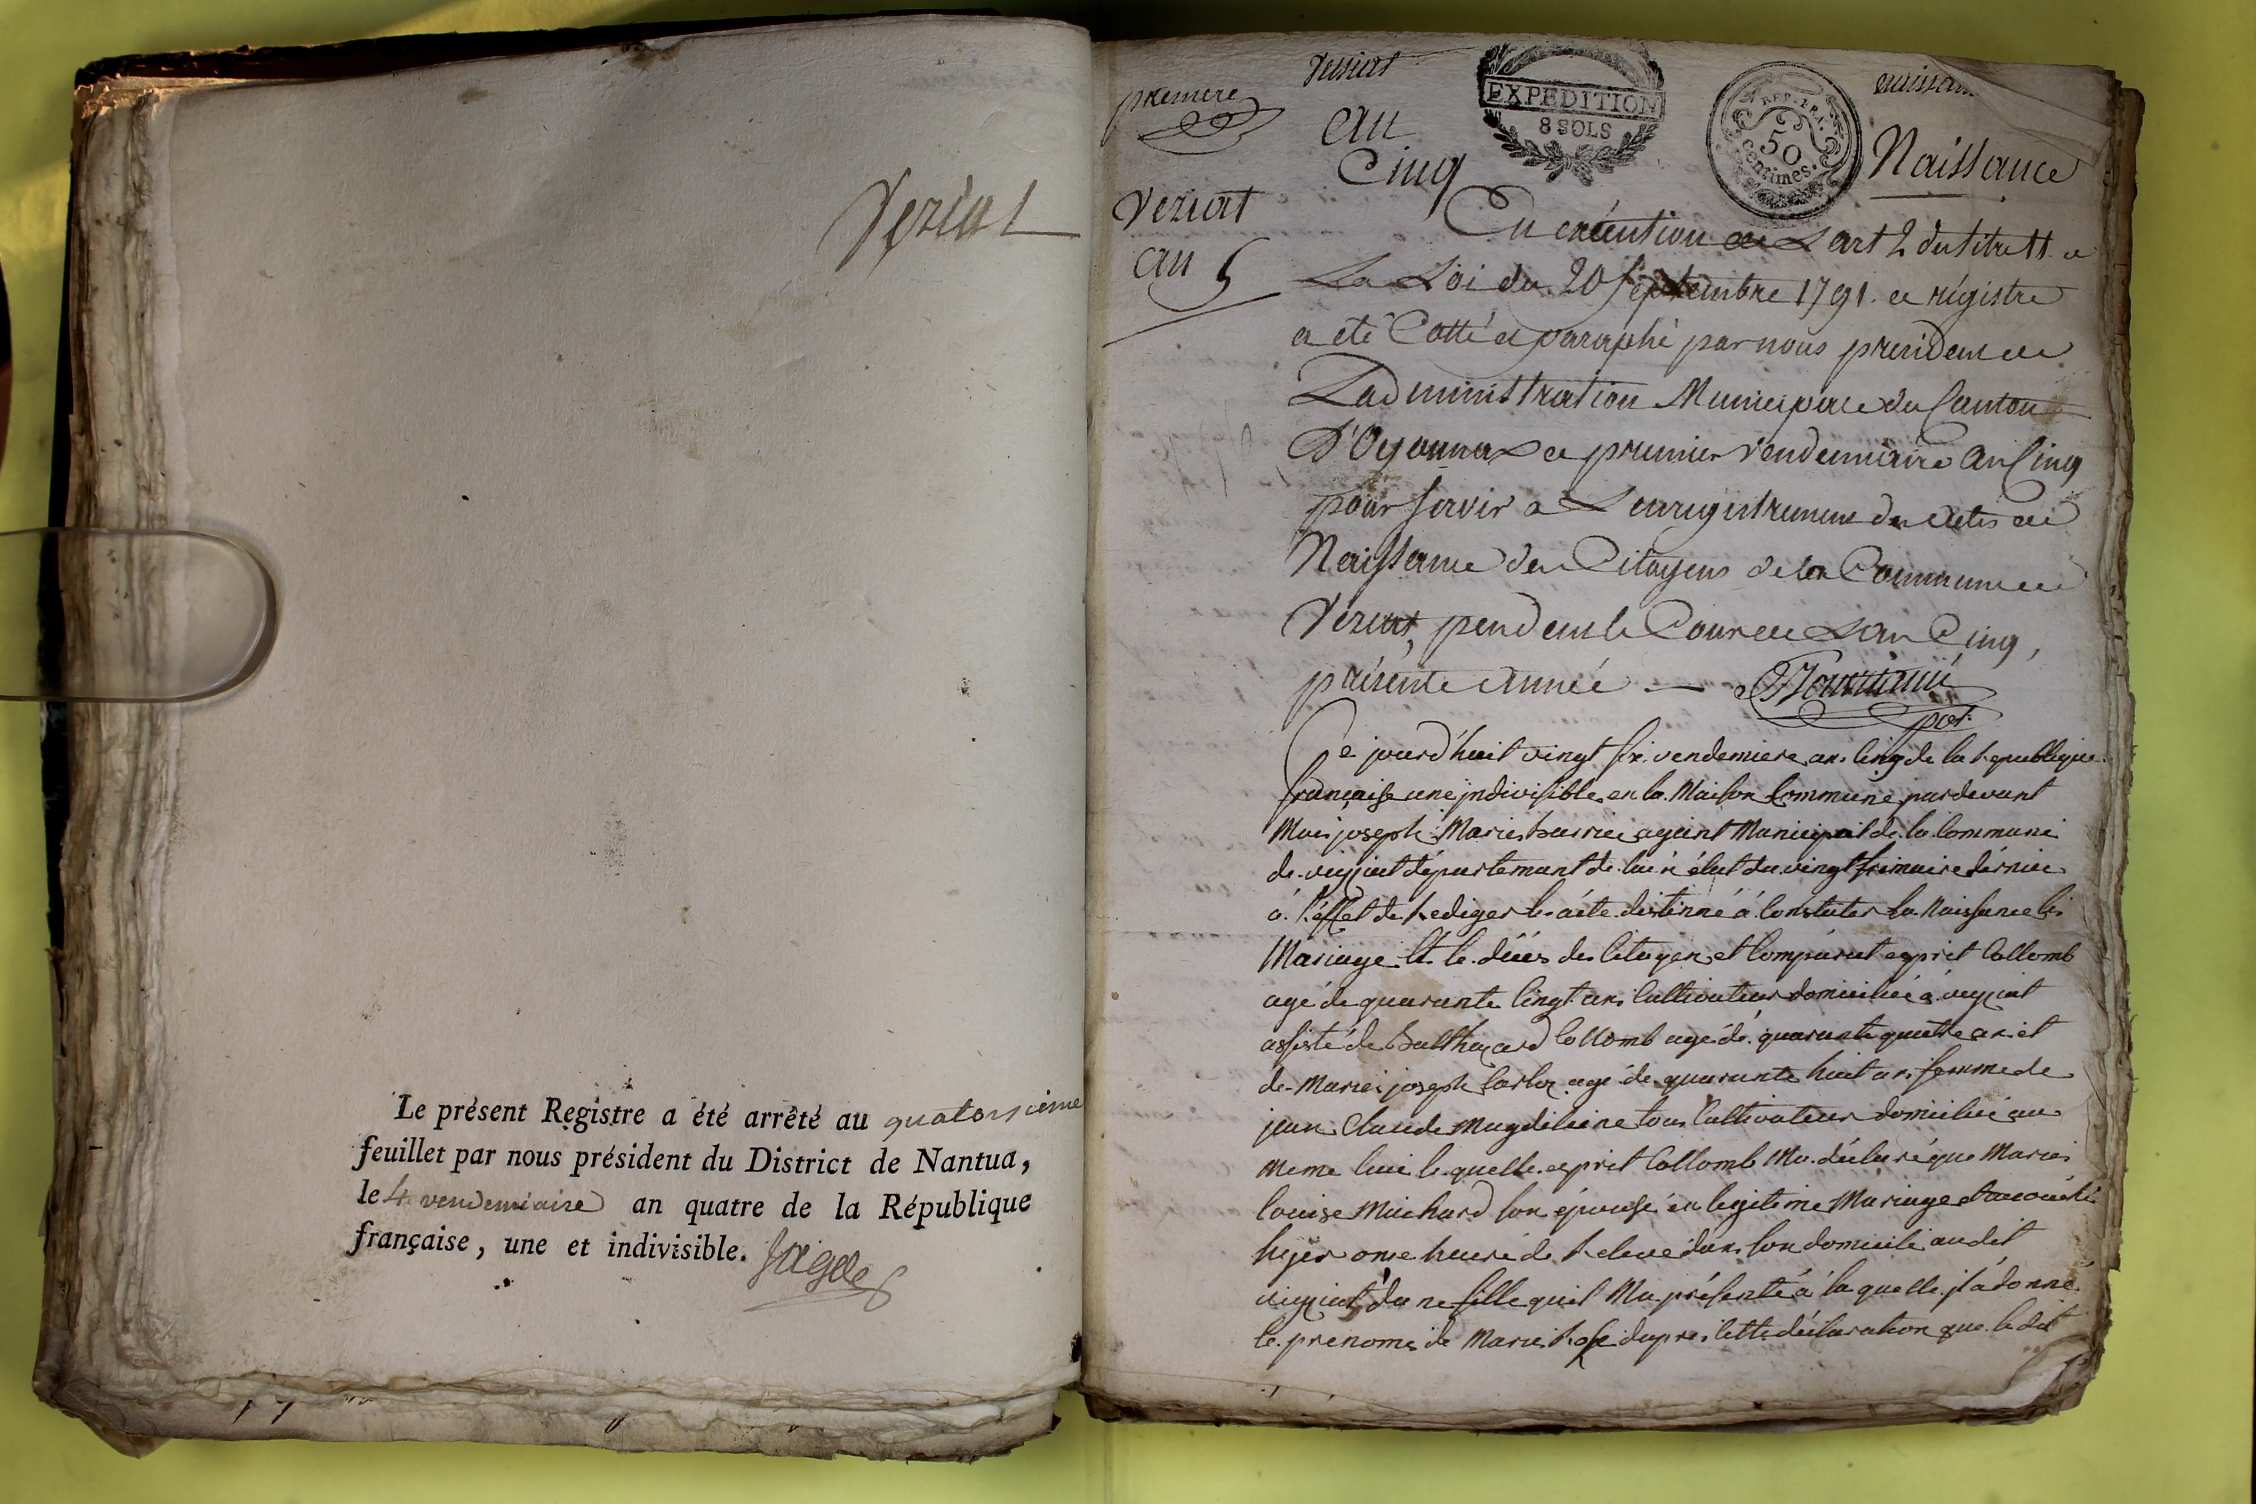 Veziat
Le présent Registre a été arrêté au quatorzième
feuillet par nous président du District de Nantua,
le 4 vendemiaire an quatre de la République
française, une et indivisible.
premiere
Veziat
an
Cinq
EXPEDITION
8 SOLS
REP. FRA.
50
centimes.
Naissance
Veziat
an 5
En exécution de L'art 2 du titre 11 de
La Loi du 20 Septembre 1791. ce régistre
a été Cotté et paraphé par nous president de
L'administration Municipale du Canton
D'Oyonnax ce premier vendemiaire an Cinq
pour servir a L'enregistrement des actes de
Naissance des Citoyens de la Commune de
Veziat, pendent le Cour de L'an Cinq,
présente année —
Ce jourd'huit vingt six vendemiere an cinq de la Republique
française une jndivisible en la Maison Commune pardevant
Moi joseph Marie agent Municipait de la Commune
de veyziat département de lain élut du vingt frimaire dérnier
á l'éffet de Rediger les acte déstinné á Constater la Naissance les
Mariage Et le déces des Citoyen et Comparut esprit Collomb
agé de quarante Cingt ans Cultivateur domicilié á veyziat
assisté de Balthazard Collomb agé dé quarante quatre an et
de Marie joseph agé de quarante huit an femme de
jean Claude Magdeleine tous Cultivateur domicilié au
meme lieu le quelle esprit Collomb Ma déclaré que Marie
louise Michard son épouse en legitime Mariage et acouché
hyer onse heure de Releve dans son domicile audit
veyziat d'une fille quil Ma présenté á la quelle jl á donné
le prenoms de Marie Rose dapres Cette déclaration que le dit